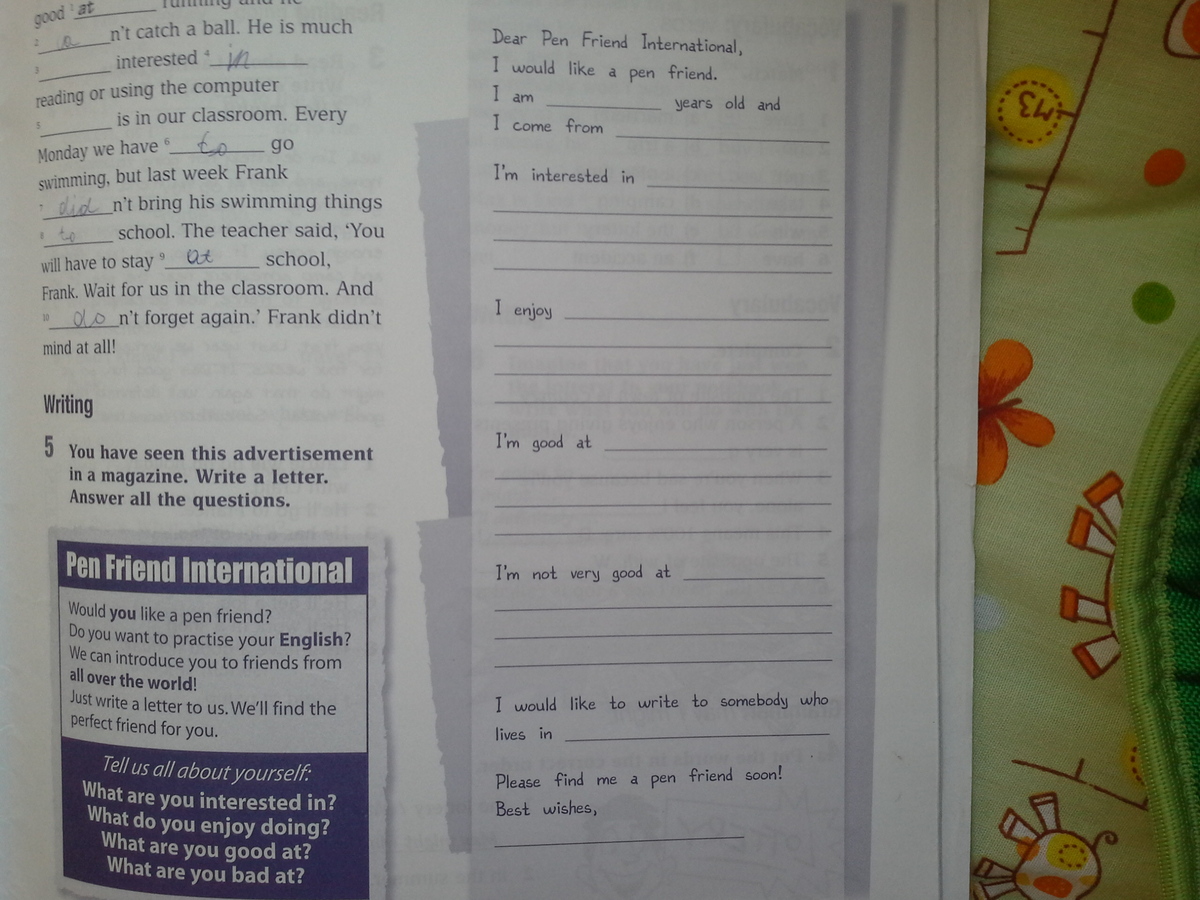 good ¹ at running and he
² n't catch a ball. He is much
³ interested ⁴ in
reading or using the computer
⁵ is in our classroom. Every
Monday we have ⁶ to go
swimming, but last week Frank
⁷ did n't bring his swimming things
⁸ to school. The teacher said, ‘You
will have to stay ⁹ at school,
Frank. Wait for us in the classroom. And
¹⁰ do n't forget again.’ Frank didn't
mind at all!
Writing
5 You have seen this advertisement
in a magazine. Write a letter.
Answer all the questions.
Pen Friend International
Would you like a pen friend?
Do you want to practise your English?
We can introduce you to friends from
all over the world!
Just write a letter to us. We'll find the
perfect friend for you.
Tell us all about yourself:
What are you interested in?
What do you enjoy doing?
What are you good at?
What are you bad at?
Dear Pen Friend International,
I would like a pen friend.
I am years old and
I come from
I'm interested in
I enjoy
I'm good at
I'm not very good at
I would like to write to somebody who
lives in
Please find me a pen friend soon!
Best wishes,